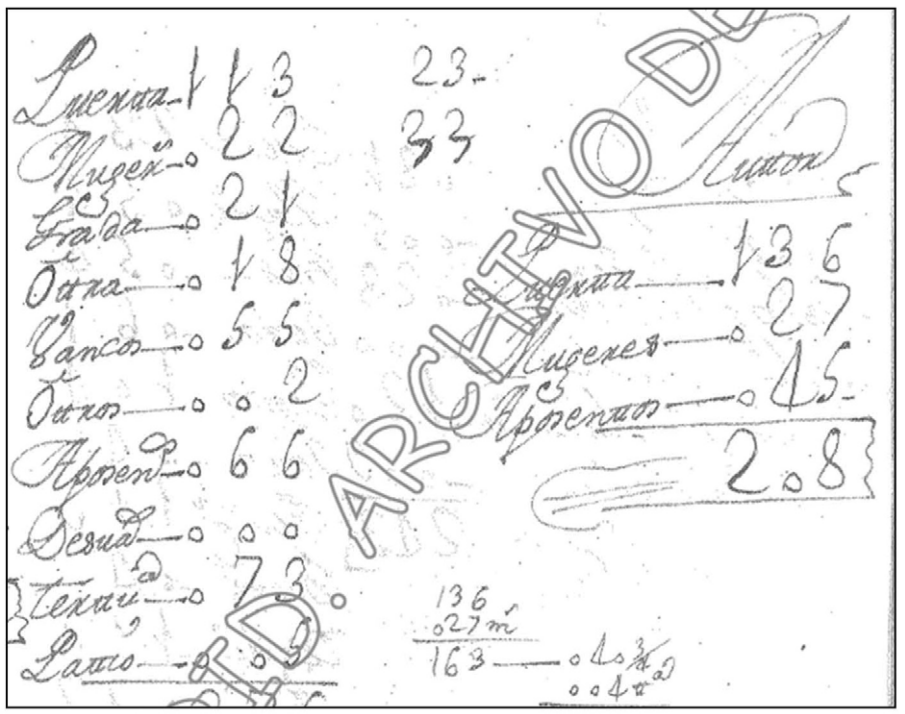 Puertta 113 23-
Muger.s 022 33
Grada 021
Ottra 018
Bancos 055
Ottros 002
Aposen.s 066
Desua.n 000
Terttu.a 073
Pattio 003
Autton
Puertta 136
Mugeres 027
Aposenttos 045-
208
136
027 m.s
163
ARCHIVO DE